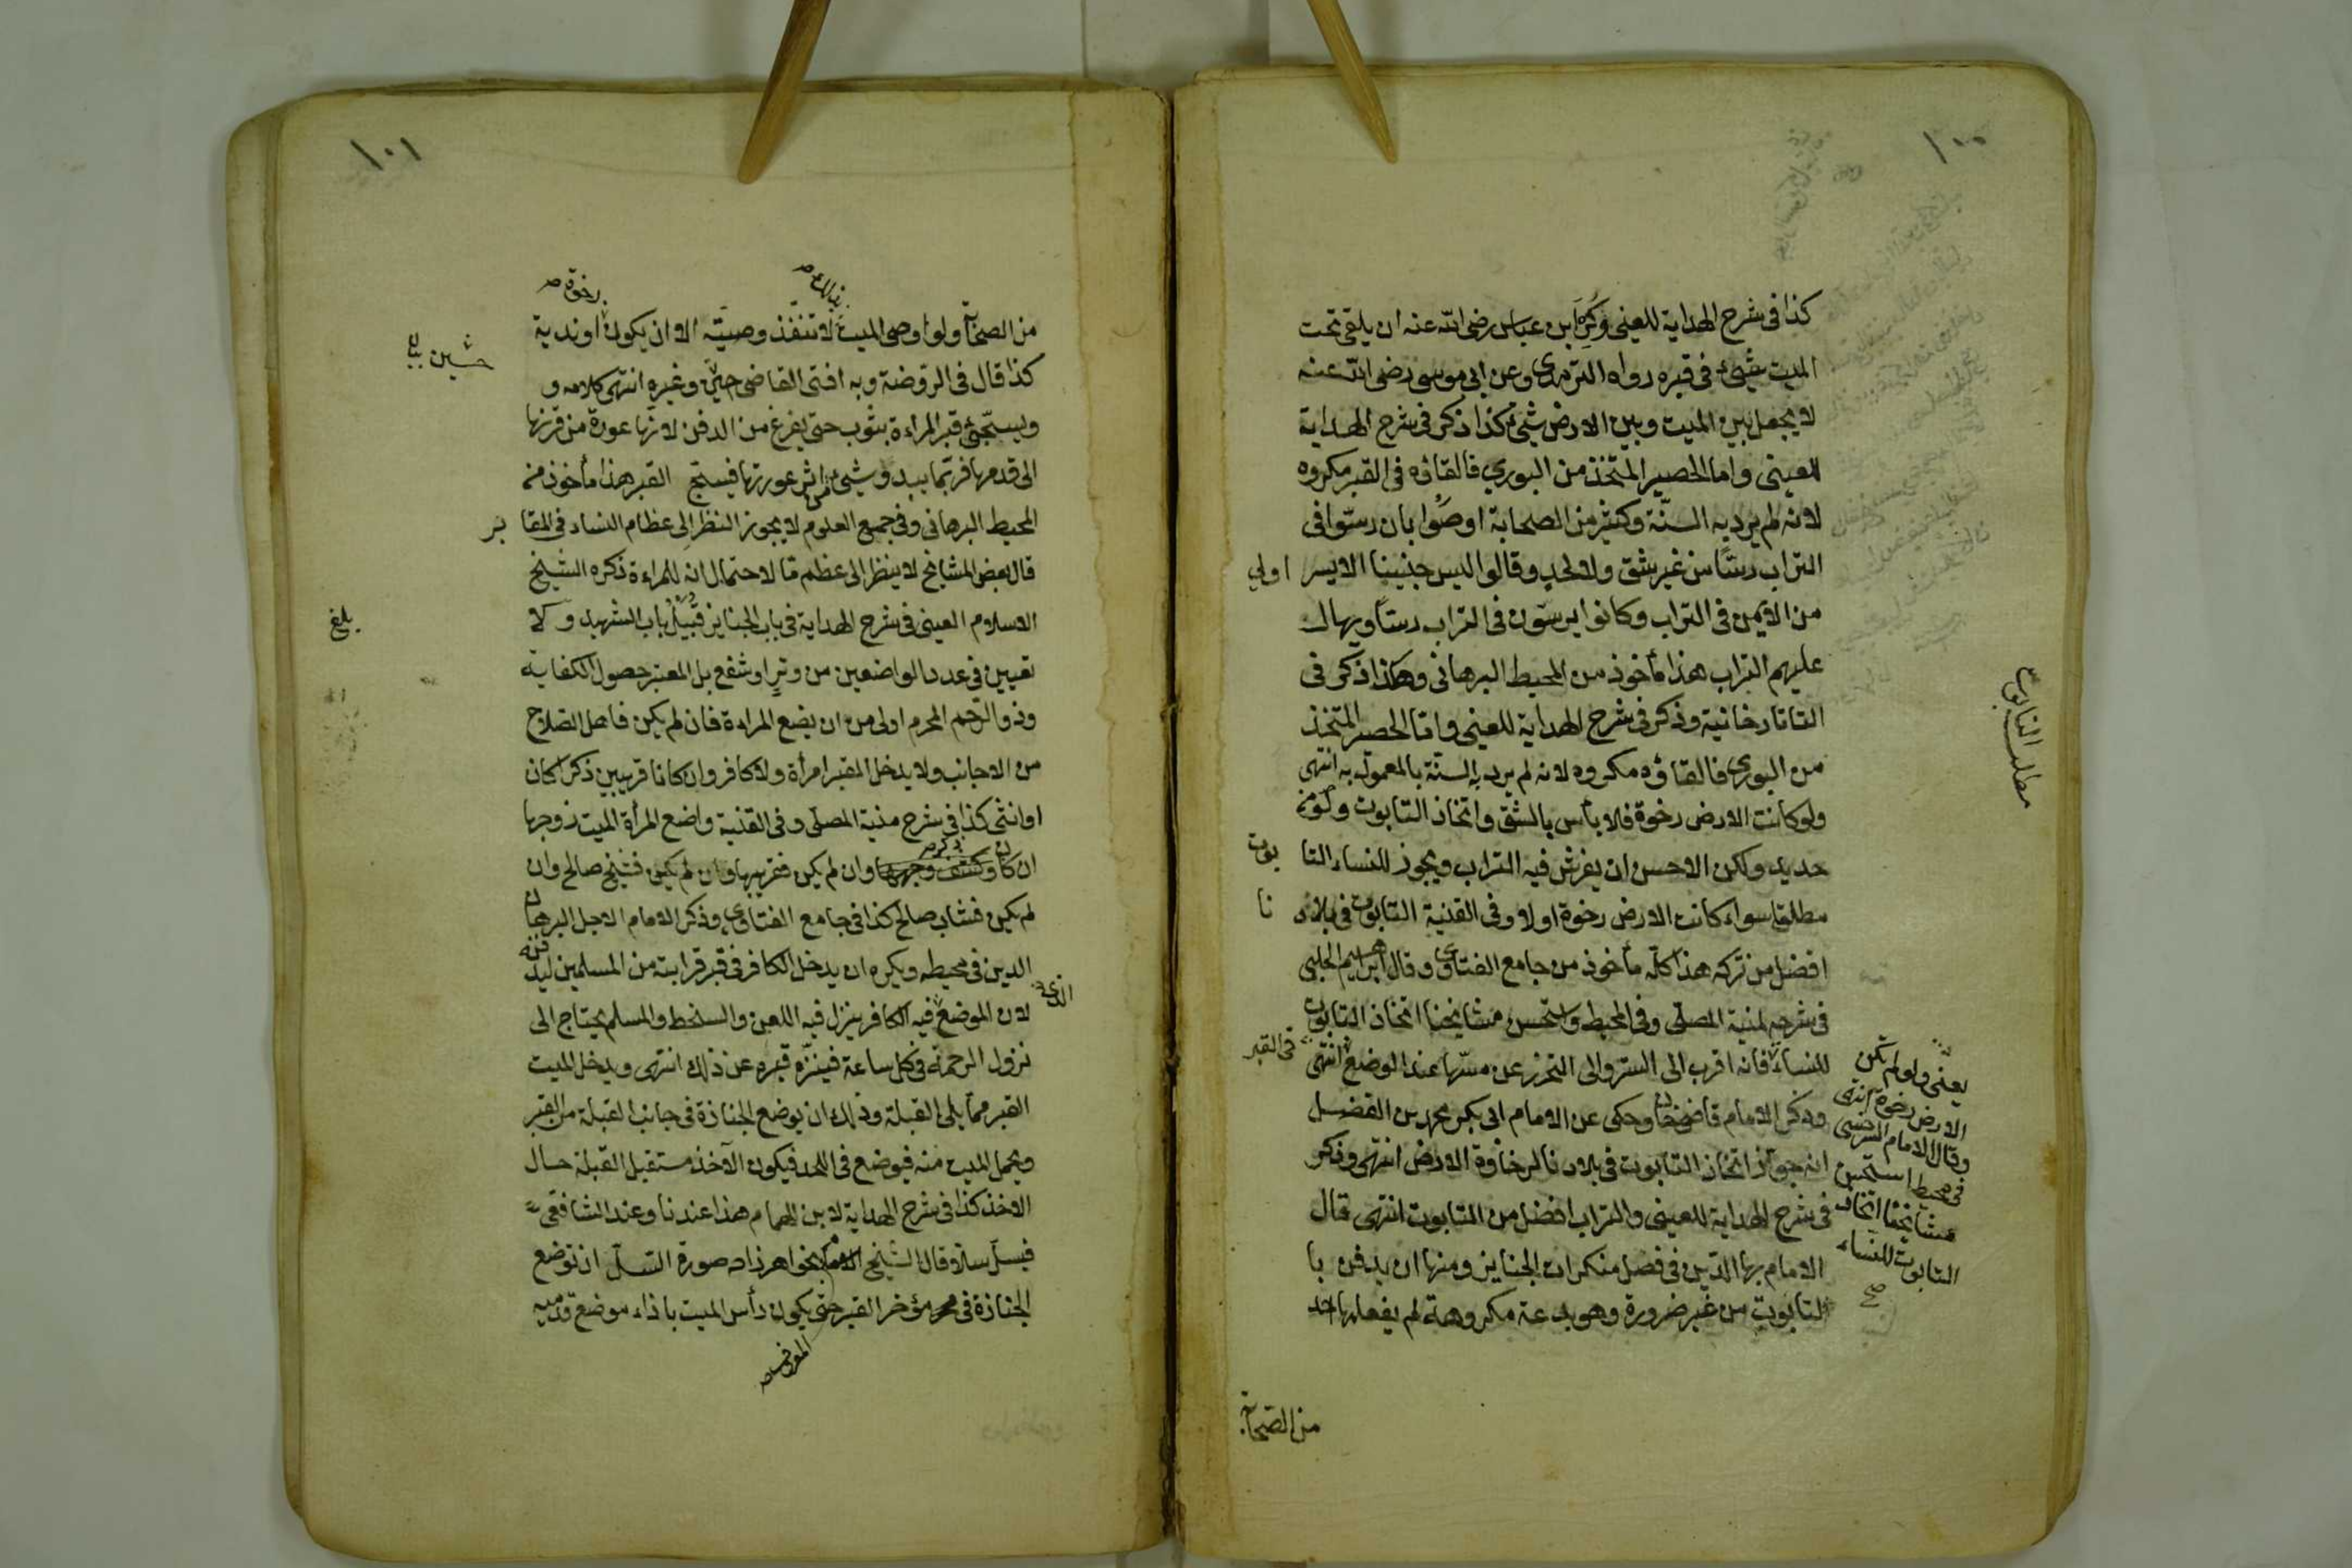 ١٠٠
كذا في شرح الهداية للعيني وكره ابن عباس رضى الله عنه ان يلقى تحت
الميت شيئ في قبره رواه الترمذي وعن ابي موسى رضى الله عنه
لا يجعل بين الميت وبين الارض شيئ كذا ذكر في شرح الهداية
للعيني واما الحصير المتخذ من البوري فالقاؤه في القبر مكروه
لانه لم يرد به السنة وكثير من الصحابة اوصوا بان رسوا في
التراب رسا من غير شق ولا لحد وقالوا اليس جنبينا الايسر اولى
من الايمن في التراب وكانوا يرسون في التراب رسا ويهال
عليهم التراب هذا مأخوذ من المحيط البرهاني وهكذا ذكر في
التاتارخانية وذكر في شرح الهداية للعيني واما الحصير المتخذ
من البوري فالقاؤه مكروه لانه لم يرد به السنة بالمعمول به انتهى
ولو كانت الارض رخوة فلا بأس بالشق واتخاذ التابوت ولو من
حديد ولكن الاحسن ان يفرش فيه التراب ويجوز للنساء التابوت
مطلقا سواء كانت الارض رخوة اولا وفي القنية التابوت في بلادنا
افضل من تركه هذا كله مأخوذ من جامع الفتاوى وقال ابراهيم الحلبي
في شرحه لمنية المصلى وفي المحيط واستحسن مشايخنا اتخاذ التابوت
للنساء فانه اقرب الى الستر والى التحرز عن مسها عند الوضع في القبر انتهى
وذكر الامام قاضيخان وحكى عن الامام ابى بكر محمد بن الفضل
انه جوز اتخاذ التابوت في بلادنا لرخاوة الارض انتهى وذكر
في شرح الهداية للعيني والتراب افضل من التابوت انتهى قال
الامام بهاالدين في فصل منكرات الجنايز ومنها ان يدفن با
لتابوت من غير ضرورة وهو بدعة مكروهة لم يفعلها احد
من الصحابة
مطلب التابوت
يعنى ولو لم تكن
الارض رخوة انتهى
وقال الامام السرخسى
في محيط استحسن
مشايخنا اتخاذ
التابوت للنساء
صح
١٠١
من الصحابة ولو اوصى الميت بذلك لا تنفذ وصيته الا ان يكون رخوة او ندية
كذا قال في الروضة وبه افتى القاضى حسين وغيره انتهى كلامه و
ويسجى قبر المراءة بثوب حتى يفرغ من الدفن لانها عورة من قرنها
الى قدمها فربما يبدو شيئ من اثر عورتها فيسجى القبر هذا مأخوذ من
المحيط البرهاني وفي جميع العلوم لا يجوز النظر الى عظام النساء في المقابر
قال بعض المشايخ لا ينظر الى عظم ما لاحتمال انه للمراءة ذكره الشيخ
الاسلام العيني في شرح الهداية في باب الجنايز قبيل باب الشهيد ولا
تعيين في عدد الواضعين من وتر او شفع بل المعتبر حصول الكفاية
وذو الرحم المحرم اولى من ان يضع المراءة فان لم يكن فاهل الصلاح
من الاجانب ولا يدخل القبر امرأة ولا كافر وان كانا قريبين ذكرا كان
او انثى كذا في شرح منية المصلى وفي القنية واضع المرأة الميت زوجها
ان كان وان لم يكن فقريبها وان لم يكن فشيخ صالح وان
لم يكن فشاب صالح كذا في جامع الفتاوى وذكر الامام الاجل البرهان
الدين في محيطه ويكره ان يدخل الكافر في قبر قرابته من المسلمين ليدفنه
لان الموضع الذى فيه الكافر ينزل فيه اللعن والسخط والمسلم يحتاج الى
نزول الرحمة في كل ساعة فينزه قبره عن ذلك انتهى ويدخل الميت
القبر مما يلى القبلة وذلك ان يوضع الجنازة في جانب القبلة من القبر
ويحمل الميت منه فيوضع في اللحد فيكون الآخذ مستقبل القبلة حال
الاخذ كذا في شرح الهداية لابن الهمام هذا عندنا وعند الشافعى
فيسل سلا وقال الشيخ الامام المعروف بخواهرزاده صورة السل ان توضع
الجنازة في مؤخر القبر حتى يكون رأس الميت باذاء موضع قدميه
بلغ